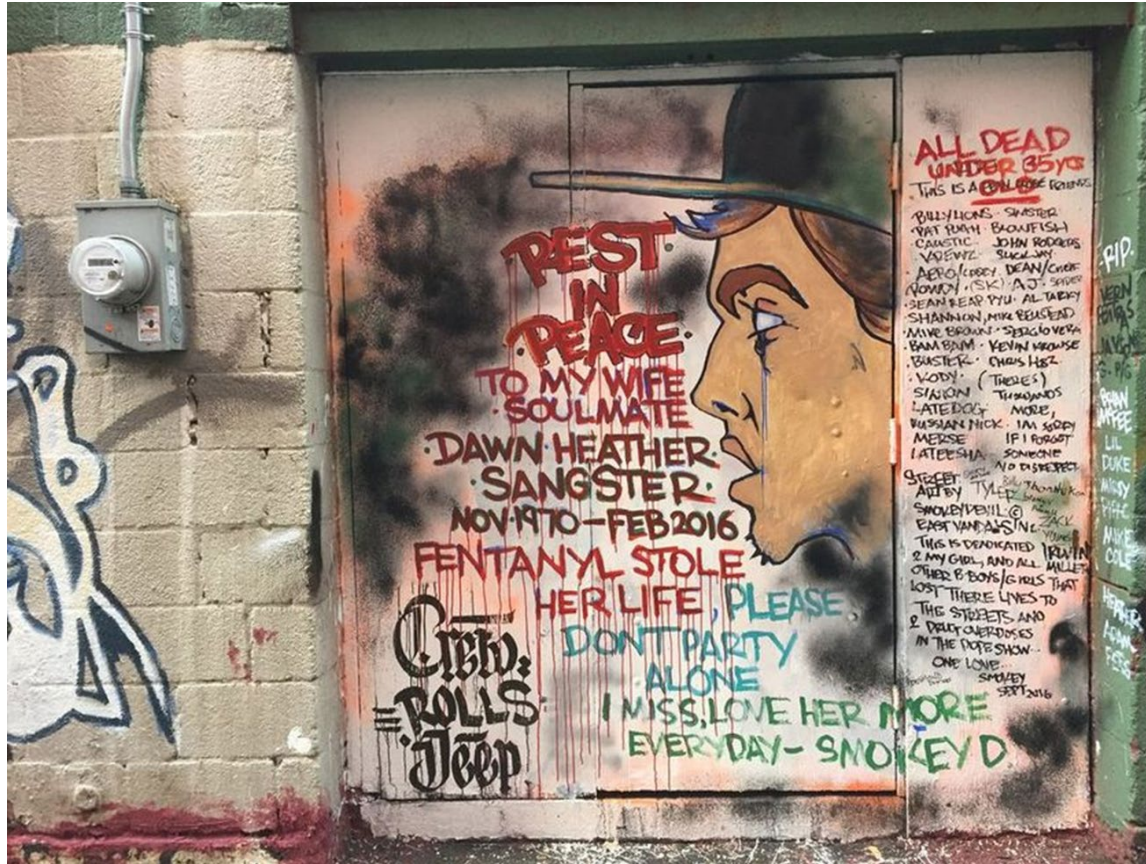 REST
IN
PEACE
TO MY WIFE
SOULMATE
DAWN HEATHER
SANGSTER
NOV·1970 - FEB 2016
FENTANYL STOLE
HER LIFE, PLEASE
DONT PARTY
ALONE
I MISS, LOVE HER MORE
EVERYDAY - SMOKEY D.
Crew
ROLLS
Deep
ALL DEAD
UNDER 35 yrs
OLD
THIS IS A FRIENDS
BILLY LIONS · SINISTER
PAT BLOWFISH
CAUSTIC · JOHN RODGERS
SLICK JAY
AERO/COREY · DEAN/
(SK) · A.J. · SPIDER
SEAN REAP RYU · AL
SHANNON, MIKE
MIKE BROWN · SERGIO VERA
BAM BAM · KEVIN KROUSE
BUSTER · CHRIS
KODY · (THERES)
SIMON THOUSANDS
LATEDOG MORE,
RUSSIAN NICK · IM SORRY
MERSE IF I FORGOT
LATEESHA SOMEONE
NO DISRESPECT
STREET
ART BY TYLER
SMOKEY DEVIL ©
EAST VANDALS INC ZACK
THIS IS DEADICATED IRWIN
2 MY GIRL, AND ALL MILLER
OTHER B-BOYS/GIRLS THAT
LOST THERE LIVES TO
THE STREETS AND
2 DRUG OVERDOSES
IN THE DOPE SHOW...
ONE LOVE...
SMOKEY
SEPT 2016
RIP.
VERN
RYAN
LIL
DUKE
MIKE
COLE